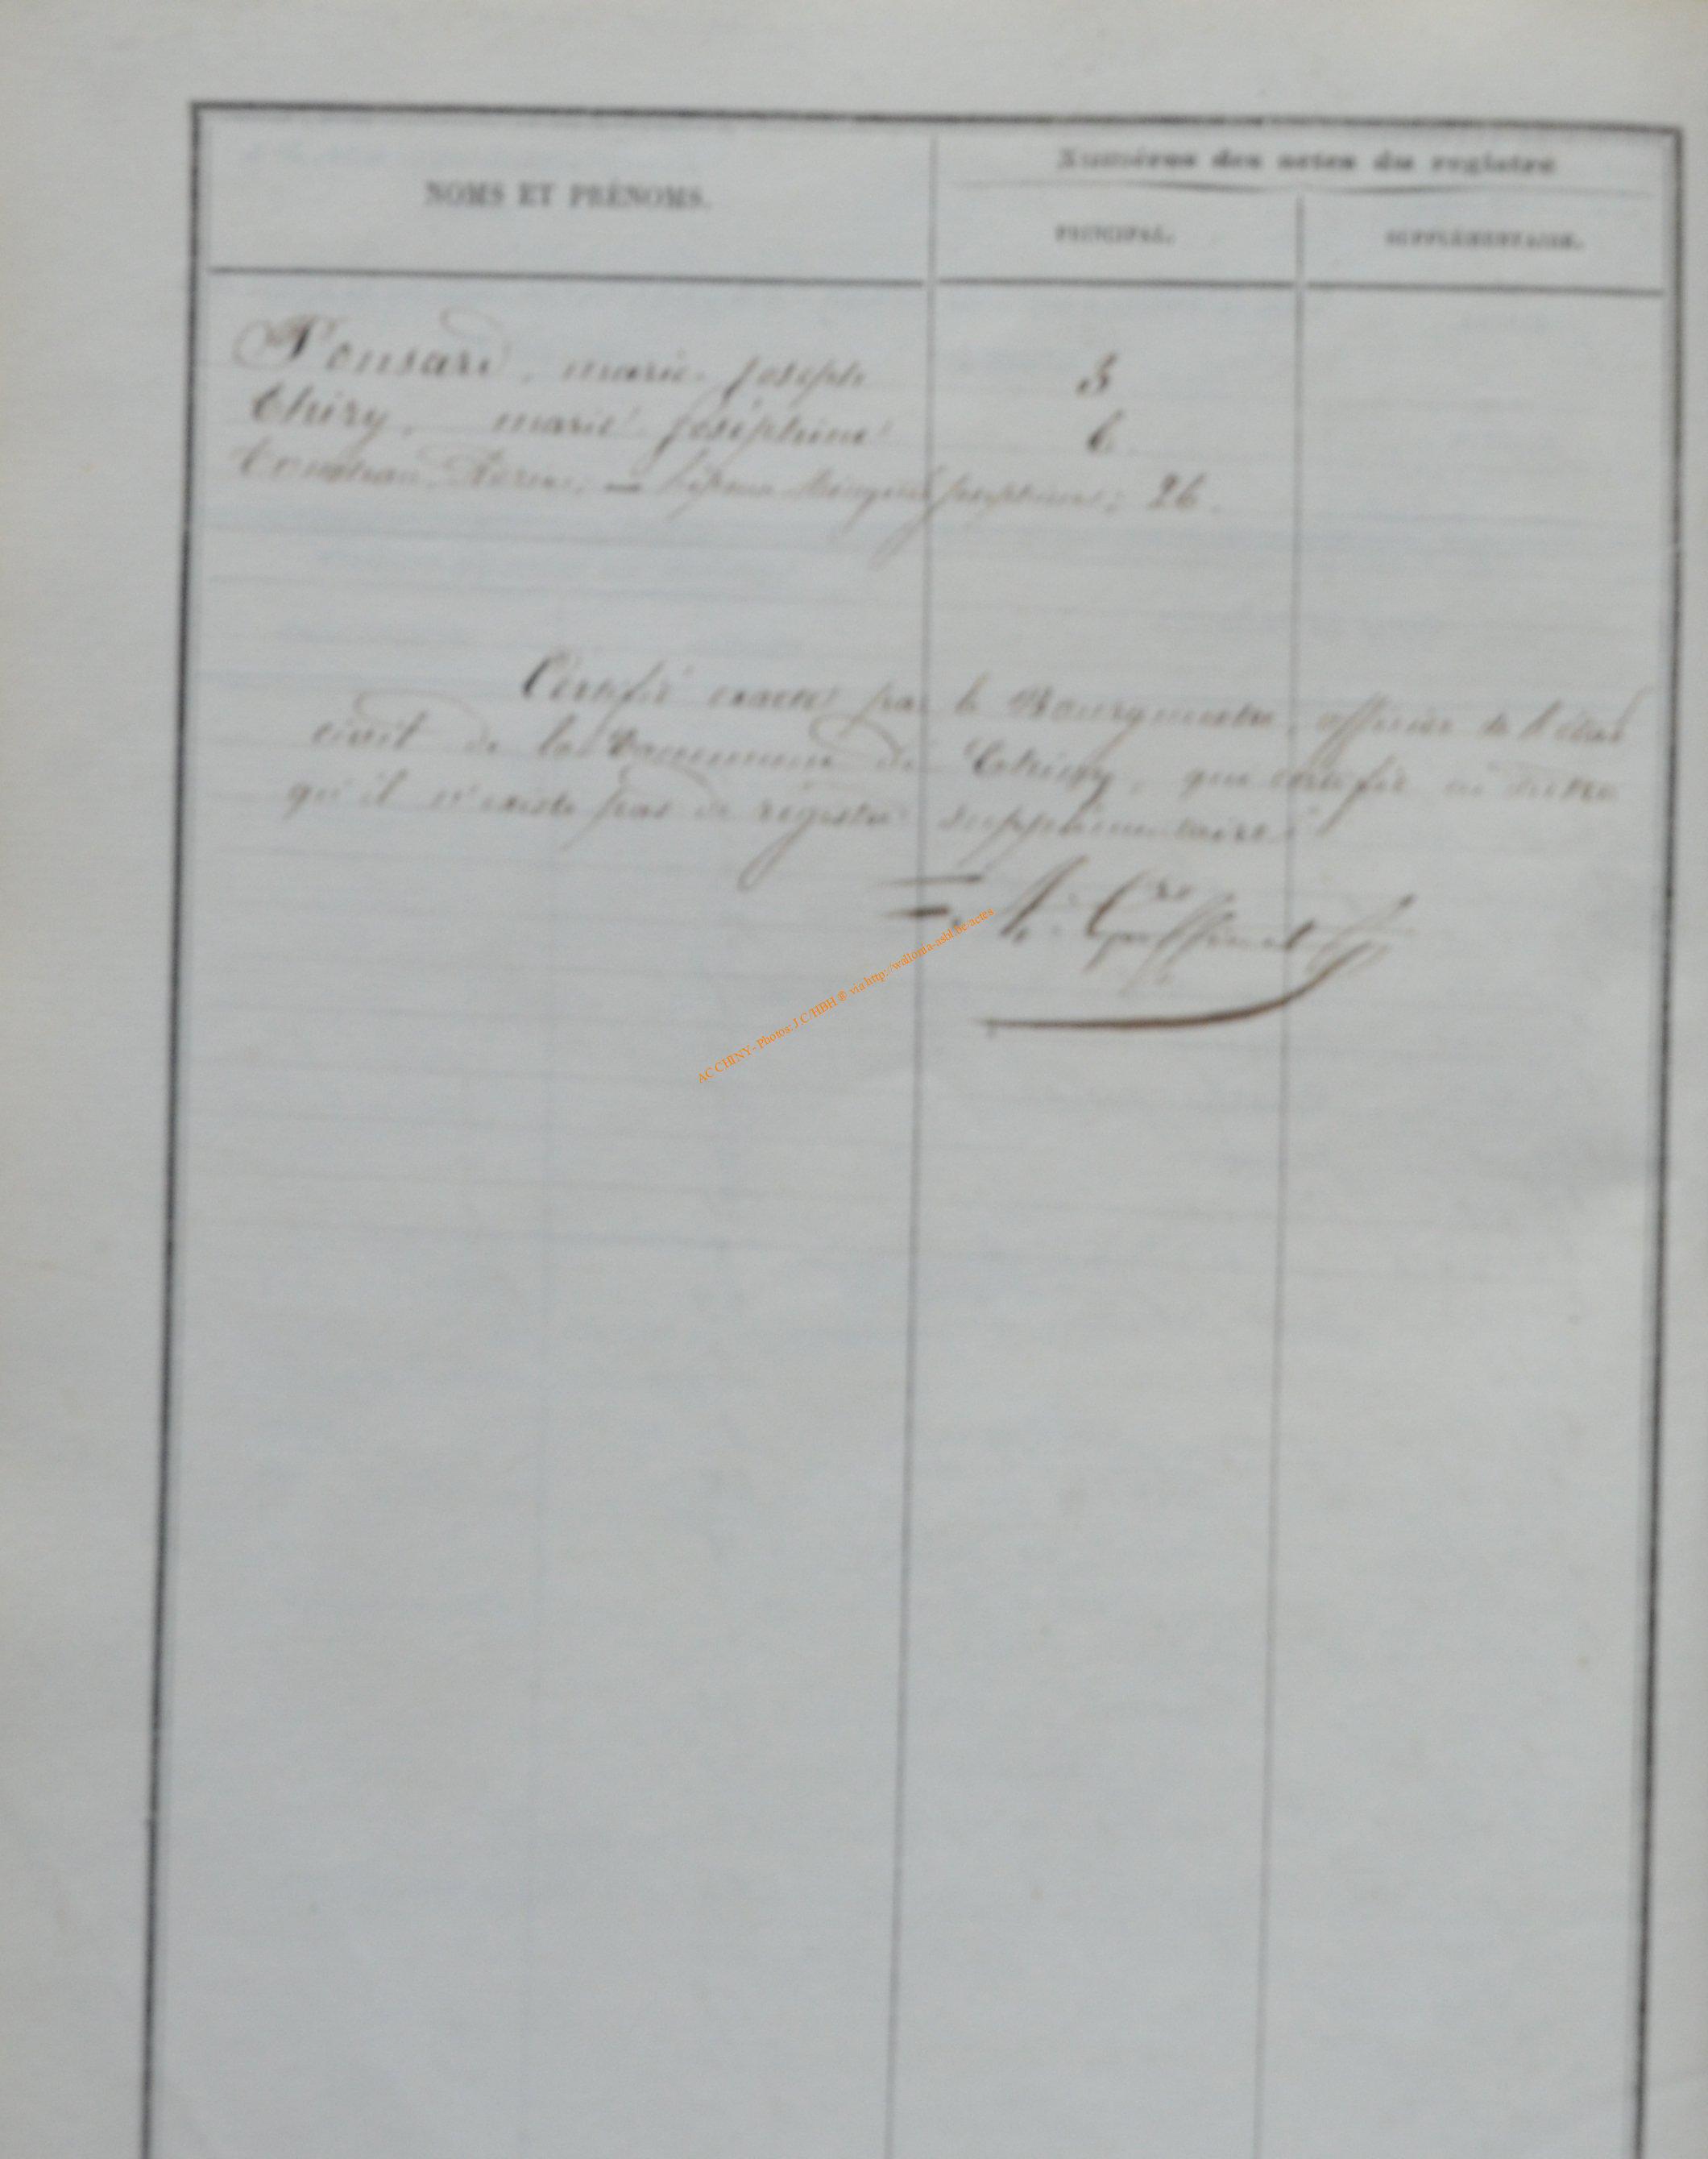 Numéros des actes du registre
NOMS ET PRÉNOMS.
PRINCIPAL. SUPPLÉMENTAIRE.
Ponsard, marie. Joseph 3
Thiry, marie Joséphine 6
26.
Certifié exacte par le Bourgmestre, officier de l'état
civil de la Commune de Chiny, qui certifie en outre
qu'il n'existe pas de régistre supplémentaire
AC CHINY- Photos: J.C/HBH ® via http://wallonia-asbl.be/actes